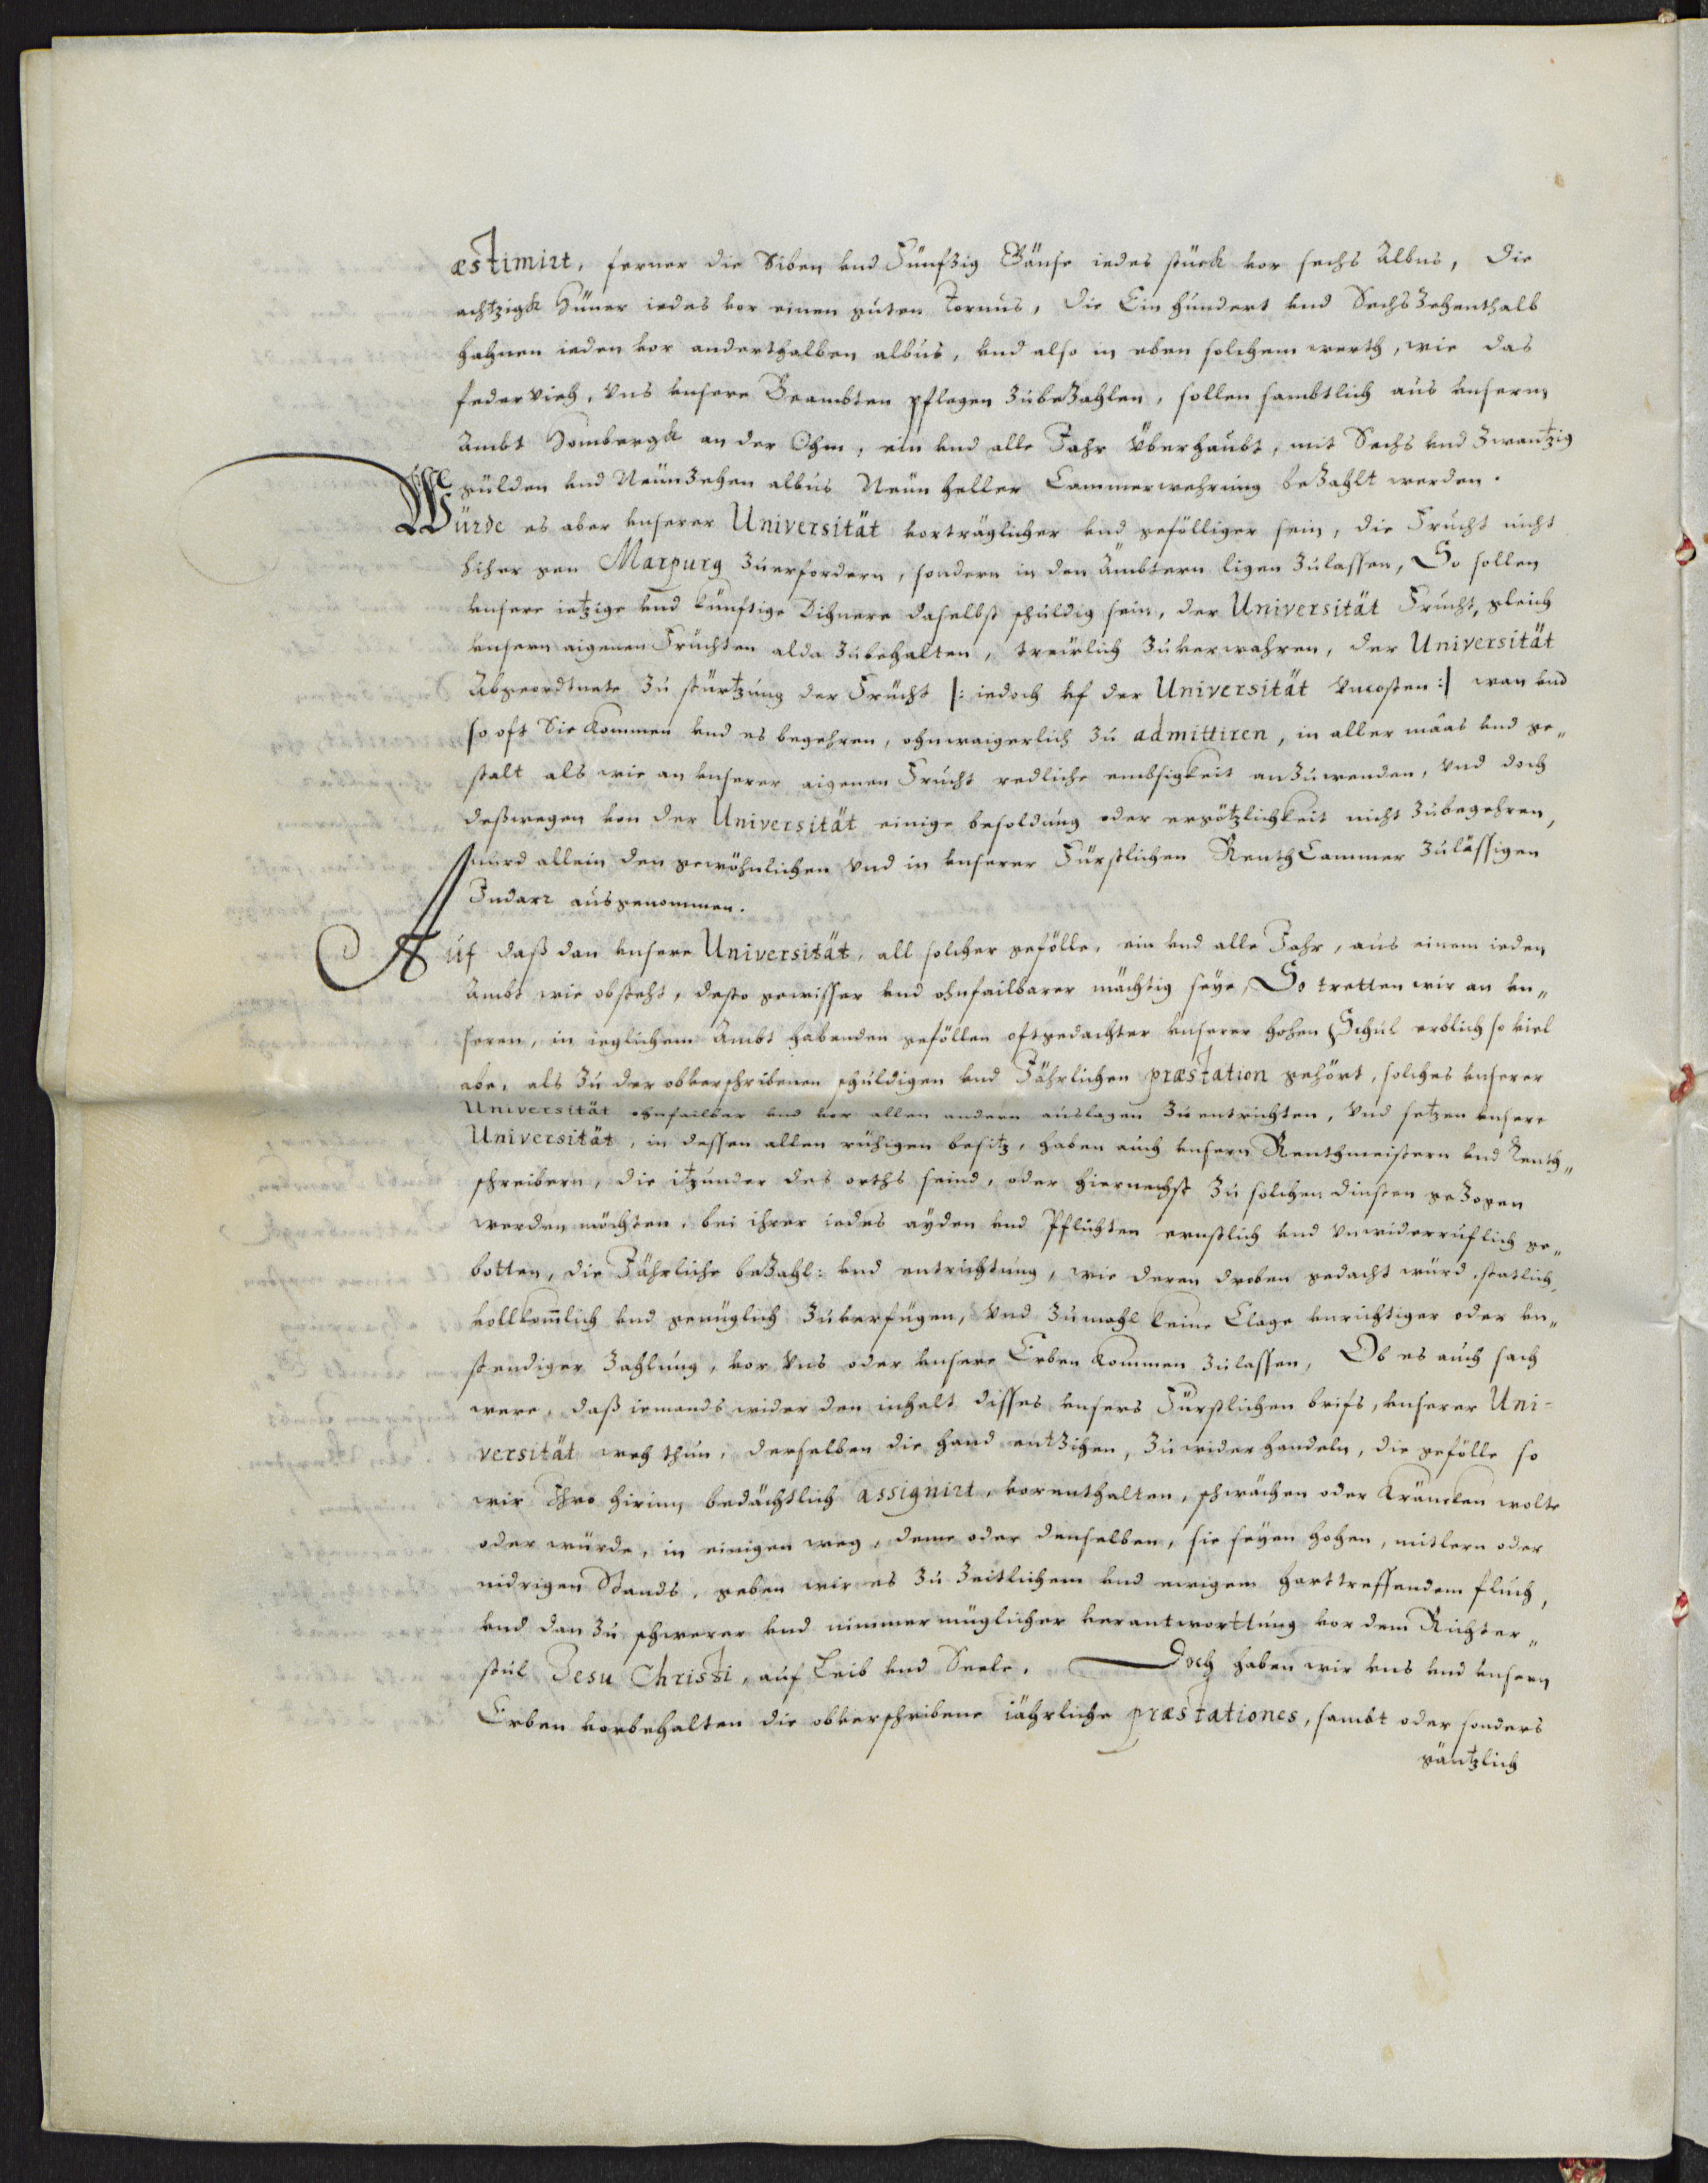 æstimirt, ferner die Siben vnd Fünfzig Gänse iedes stück vor sechs Albus, die
achtzigk Hüner iedes vor einen guten Tornus, die Ein hundert vnd Sechszehenthalb
hahnen ieden vor anderthalben albus, vnd also in eben solchem werth, wie das
federvieh, vns vnsere Beambten pflegen zubezahlen, sollen sambtlich aus vnserm
Ambt Hombergk an der Ohm, ein vnd alle Jahr überhaubt, mit Sechs vnd Zwantzig
gülden vnd Neünzehen albus Neün heller Cammerwehrung bezahlt werden.
Würde es aber vnserer Universität vorträglicher vnd gefölliger sein, die Frucht nicht
hiher gen Marpurg zuerfordern, sondern in den Ämbtern ligen zulassen, So sollen
vnsere ietzige vnd künftige Dihnere daselbst schuldig sein, der Universität Frucht, gleich
vnsern aigenen Früchten alda zubehalten, treürlich zuverwahren, der Universität
Abgeordtnete zu stürtzung der Frücht |: iedoch vf der Universität vncosten :| wan vnd
so oft Sie kommen vnd es begehren, ohnwaigerlich zu admittiren, in aller mâas vnd ge„
stalt als wie an vnserer aigenen Frucht redliche embsigkeit anzuwenden, vnd doch
deßwegen von der Universität einige besoldung oder ergötzlichkeit nicht zubegehren,
wurd allein den gewöhnlichen vnd in vnserer Fürstlichen RenthCammer zulässigen
ausgenommen.
Auf daß dan vnsere Universität, all solcher gefölle, ein vnd alle Jahr, aus einem ieden
Ambt wie obsteht, desto gewisser vnd ohnfailbarer mächtig seye, So tretten wir an vn„
seren, in ieglichem Ambt habenden geföllen oftgedachter vnserer hohen Schul erblich so viel
abe, als zu der obverschribenen schuldigen vnd Jährlichen præstation gehört, solches vnserer
Universität ohnfailbar vnd vor allen andern auslagen zuentrichten, vnd setzen vnsere
Universität, in dessen allen rühigen besitz, haben auch vnsern Renthmeistern vnd Renth„
schreibern, die itzunder des orths seind, oder hiernechst zu solchen dinsten gezogen
werden möchten, bei ihrer iedes ayden vnd Pflichten ernstlich vnd vnwiderruflich ge„
botten, die Jährliche bezahl: vnd entrichtung, wie deren droben gedacht würd, statlich,
vollkom̅lich vnd genüglich zuverfügen, vnd zumahl keine Clage vnrichtiger oder vn„
stendiger zahlung, vor vns oder vnsere Erben kommen zulassen, Ob es auch sach
were, daß iemands wider den inhalt disses vnsers Fürstlichen brifs, vnserer Uni-
versität weh thun, derselben die hand entzihen, zuwider handeln, die gefölle so
wir Ihro hirinn bedächtlich assignirt, vorenthalten, schwächen oder kräncken wolte
oder würde, in einigen weg, deme oder denselben, sie seyen hohen, mitlern oder
nidrigen Stands, geben wir es zu zeitlichem vnd ewigem harttreffendem fluch,
vnd dan zu schwerer vnd nimmer müglicher verantworttung vor dem Richter„
stul Jesu Christi, auf Leib vnd Seele. Doch haben wir vns vnd vnsern
Erben vorbehalten die obverschribene iährliche præstationes, sambt oder sonders
gäntzlich